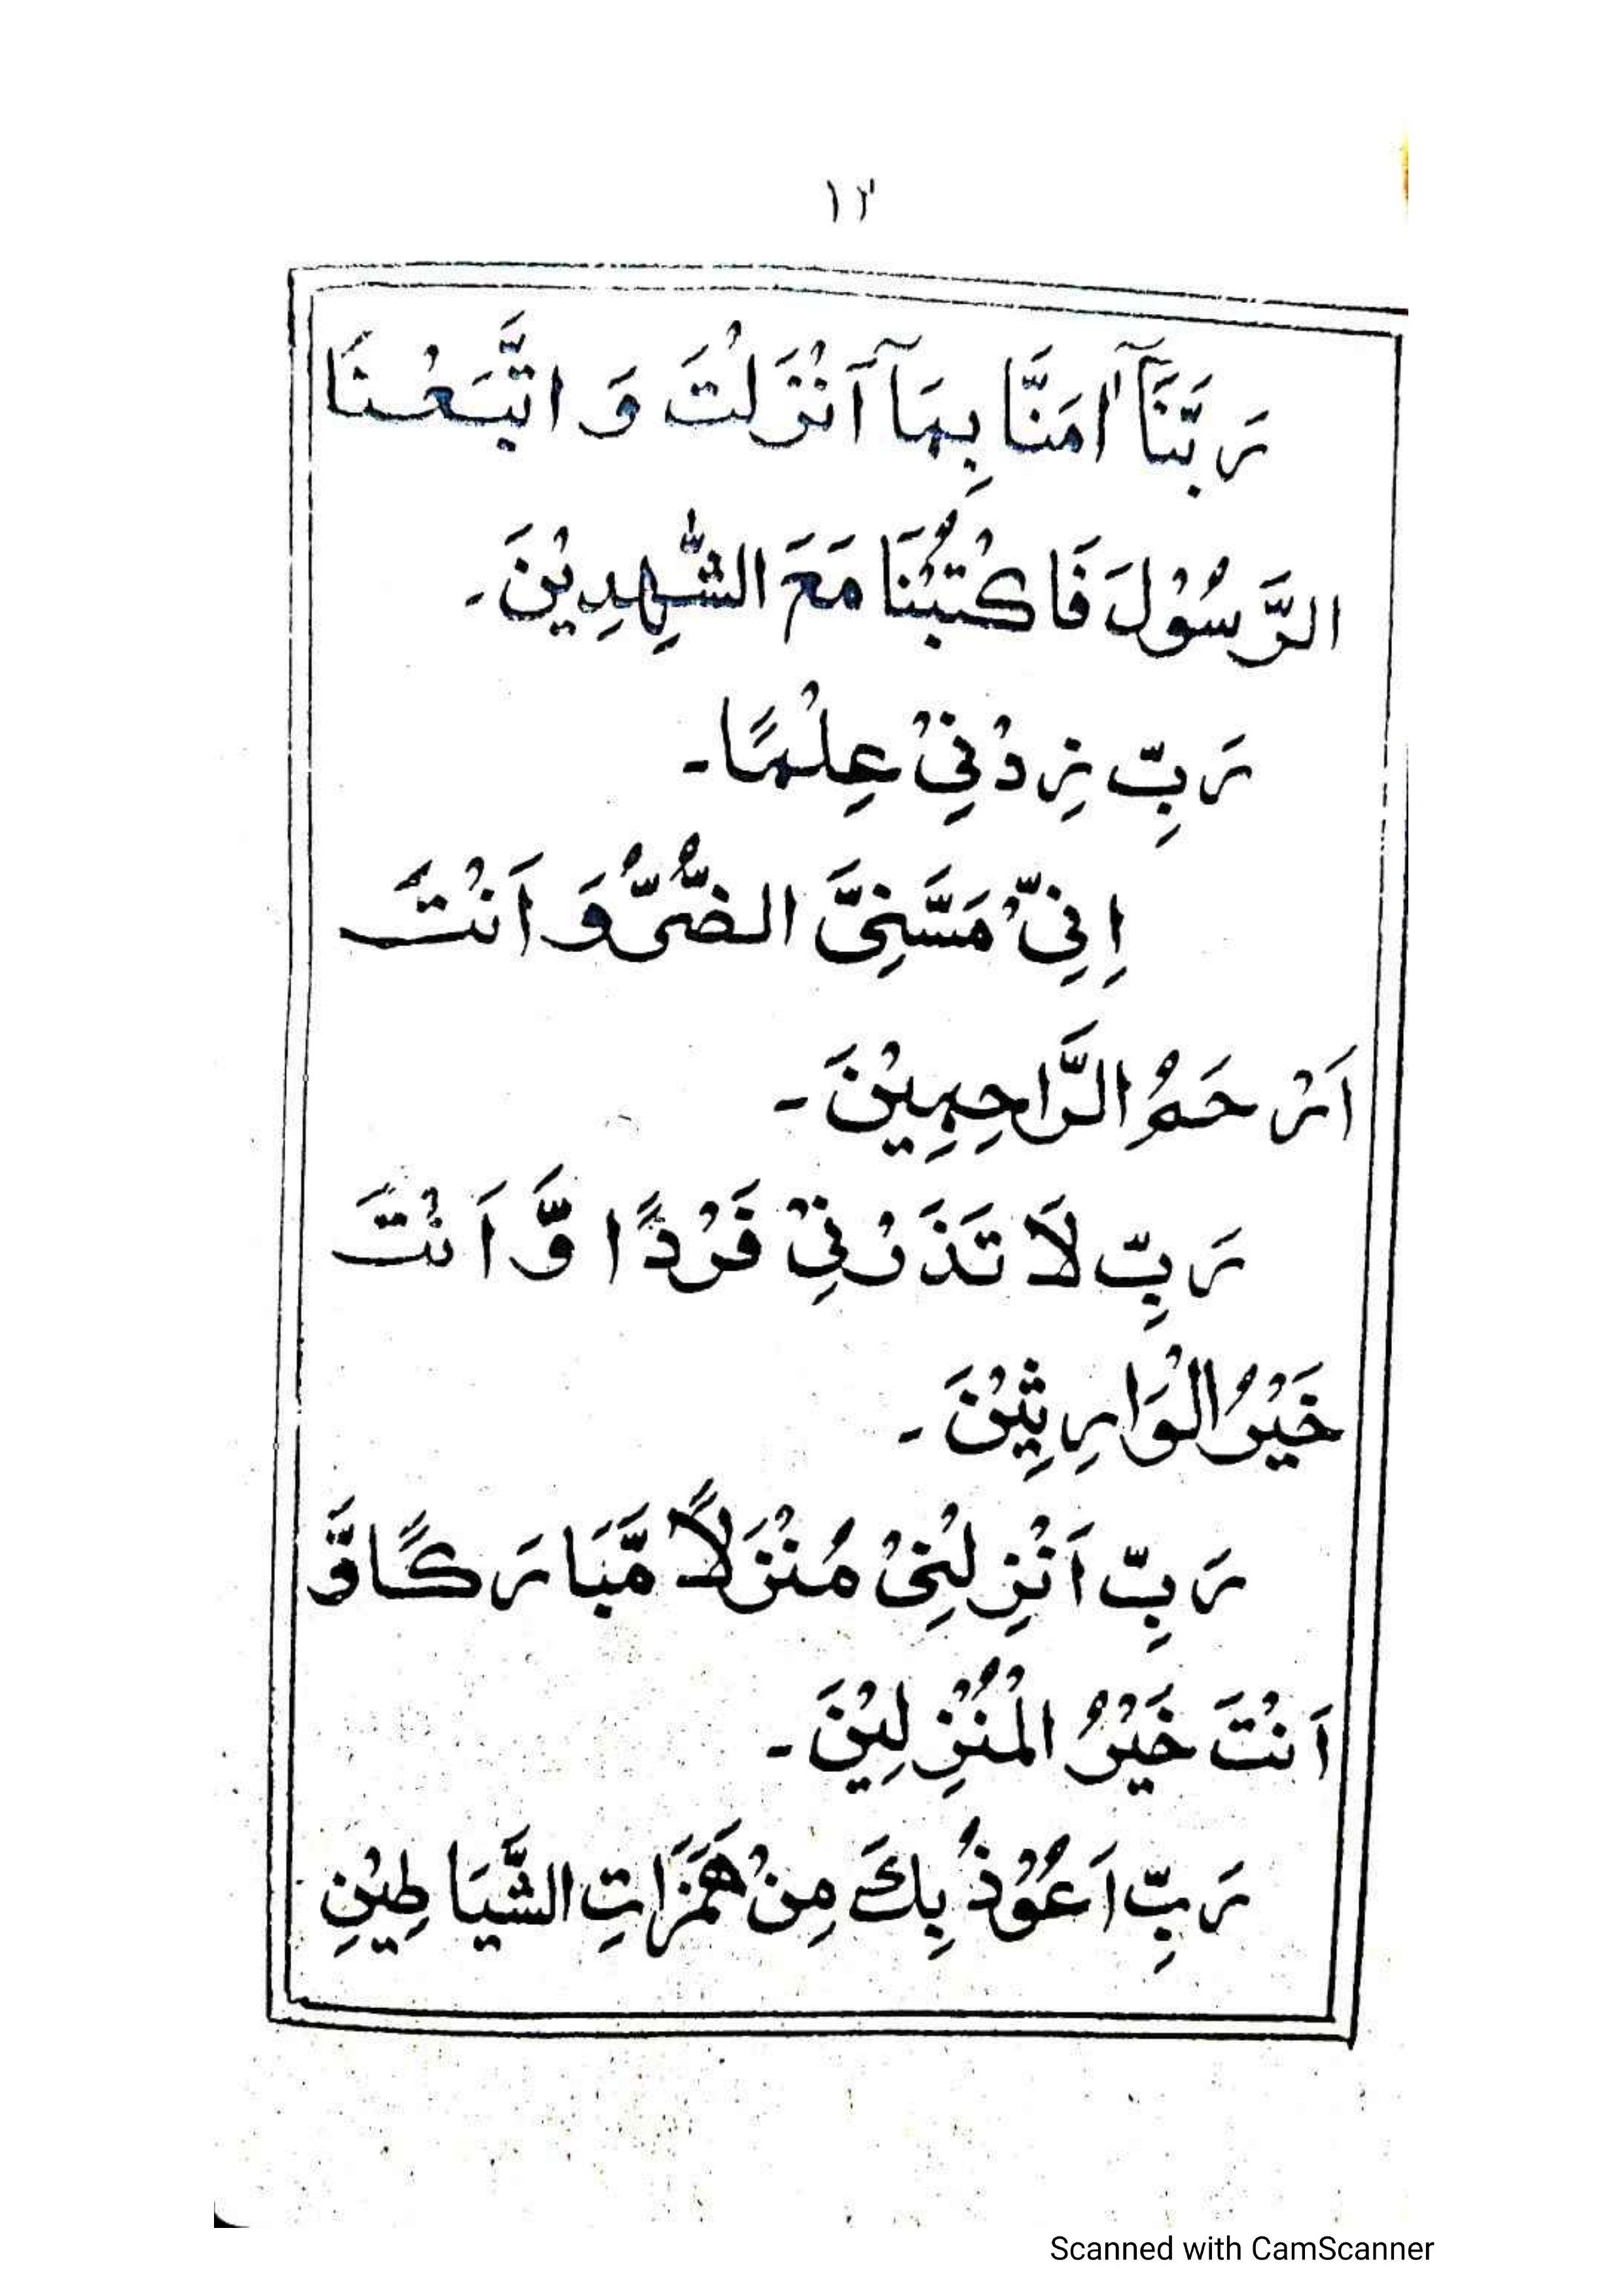 ١٣
رَبَّنَآ اٰمَنَّا بِمَآ اَنْزَلْتَ وَ اتَّبَعْنَا
الرَّسُوْلَ فَاكْتُبْنَا مَعَ الشّٰهِدِيْنَ۔
رَبِّ زِدْنِيْ عِلْمًا۔
اِنِّيْ مَسَّنِيَ الضُّرُّ وَ اَنْتَ
اَرْحَمُ الرَّاحِمِيْنَ۔
رَبِّ لَا تَذَرْنِيْ فَرْدًا وَّ اَنْتَ
خَيْرُ الْوَارِثِيْنَ۔
رَبِّ اَنْزِلْنِيْ مُنْزَلًا مُّبَارَكًا وَّ
اَنْتَ خَيْرُ الْمُنْزِلِيْنَ۔
رَبِّ اَعُوْذُ بِكَ مِنْ هَمَزَاتِ الشَّيَاطِيْنِ
Scanned with CamScanner